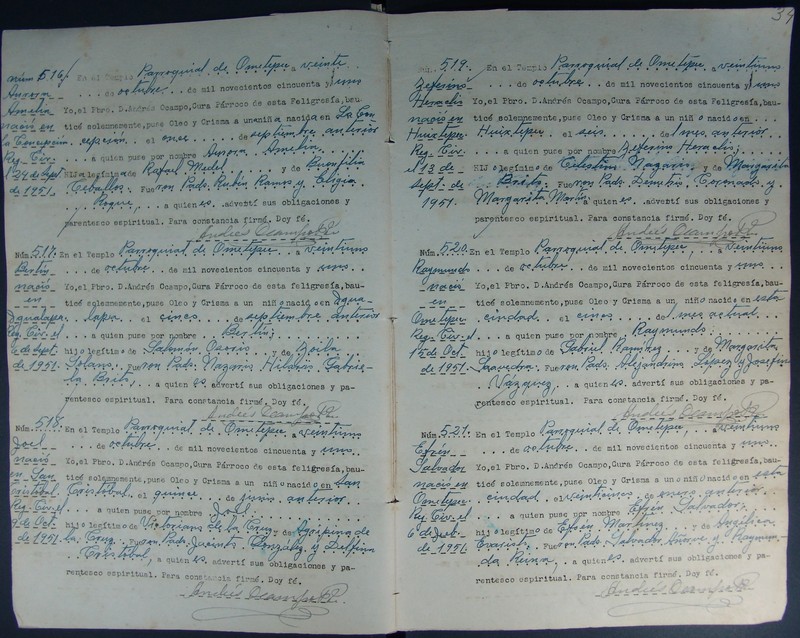 34
núm 516. En el Templo Parroquial de Ometepec a veinte
Aurora de octubre de mil novecientos cincuenta y uno
Amelia Yo, el Pbro. D. Andrés Ocampo, Cura Párroco de esta Feligresía, bau-
nació en ticé solemnemente, puse Oleo y Crisma a una niña nacida en La Con
la Concepción cepción el once de septiembre anterior
Reg. Civ. a quien puse por nombre Aurora Amelia
24 de Sept. Hija legítima de Rafael Medel y de
de 1951. Ceballos. Fueron Pads. Rubén Ramos y
Roque, a quienes advertí sus obligaciones y
parentesco espiritual. Para constancia firmé. Doy fé.
Andrés Ocampo
Núm. 517. En el Templo Parroquial de Ometepec, a veintiuno
Bertín de octubre de mil novecientos cincuenta y uno
nació Yo, el Pbro. D. Andrés Ocampo, Cura Párroco de esta feligresía, bau-
en ticé solemnemente, puse Oleo y Crisma a un niño nacido en Igua-
Igualapa. lapa el cinco de septiembre anterior
Reg. Civ. el a quien puse por nombre Bertín;
6 de Sept. hijo legítimo de Osorio y de Zoila
de 1951. Solano. Fueron Pads. Nazario Hilario
a quienes advertí sus obligaciones y pa-
rentesco espiritual. Para constancia firmé. Doy fé.
Andrés Ocampo
Núm. 518. En el Templo Parroquial de Ometepec a veintiuno
Joel de octubre de mil novecientos cincuenta y uno
nació Yo, el Pbro. D. Andrés Ocampo, Cura Párroco de esta feligresía, bau-
en San ticé solemnemente, puse Oleo y Crisma a un niño nacido en San
Cristóbal. Cristóbal el quince de junio anterior
Reg. Civ. el a quien puse por nombre Joel
9 de Oct. hijo legítimo de Victoriano de la Cruz y de Agripina de
de 1951. la Cruz. Fueron Pads. Jacinto González y Delfina
Cristóbal, a quienes advertí sus obligaciones y pa-
rentesco espiritual. Para constancia firmé. Doy fé.
Andrés Ocampo
519. En el Templo Parroquial de Ometepec a veintiuno
Zeferino de octubre de mil novecientos cincuenta y uno
Heraclio Yo, el Pbro. D. Andrés Ocampo, Cura Párroco de esta Feligresía, bau-
nació en ticé solemnemente, puse Oleo y Crisma a un niño nacido en
Huixtepec Huixtepec el seis de mes anterior
Reg. Civ. a quien puse por nombre Zeferino Heraclio;
el 13 de Hijo legítimo de Celestino y de Margarita
Sept. de Brito. Fueron Pads. Demetrio Coronado y
1951. Margarita a quienes advertí sus obligaciones y
parentesco espiritual. Para constancia firmé. Doy fé.
Andrés Ocampo
Núm. 520. En el Templo Parroquial de Ometepec, a veintiuno
Raymundo de octubre de mil novecientos cincuenta y uno
nació Yo, el Pbro. D. Andrés Ocampo, Cura Párroco de esta feligresía, bau-
en ticé solemnemente, puse Oleo y Crisma a un niño nacido en esta
Ometepec ciudad el cinco de mes actual
Reg. Civ. el a quien puse por nombre Raymundo
15 de Oct. hijo legítimo de Gabriel Ramírez y de Margarita
de 1951. Saavedra. Fueron Pads. Alejandrino López y Josefina
Vázquez, a quienes advertí sus obligaciones y pa-
rentesco espiritual. Para constancia firmé. Doy fé.
Andrés Ocampo
Núm. 521. En el Templo Parroquial de Ometepec, veintiuno
Efrén de octubre de mil novecientos cincuenta y uno
Salvador Yo, el Pbro. D. Andrés Ocampo, Cura Párroco de esta feligresía, bau-
nació en ticé solemnemente, puse Oleo y Crisma a un niño nacido en esta
Ometepec ciudad el veintinueve de enero anterior
Reg. Civ. el a quien puse por nombre Efrén Salvador;
6 de Feb. hijo legítimo de Efrén Martínez de Angélica
de 1951. Evaristo. Fueron Pads. Salvador Añorve y Raymun-
da Reina, a quienes advertí sus obligaciones y pa-
rentesco espiritual. Para constancia firmé. Doy fé.
Andrés Ocampo